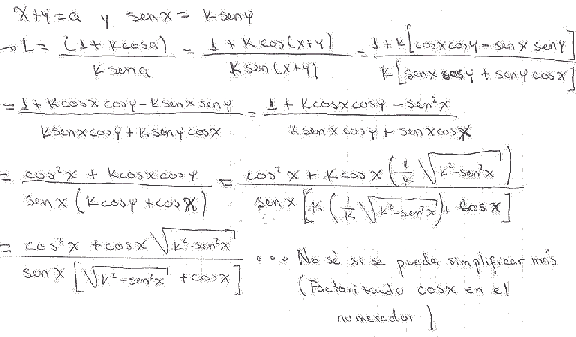 x+y=a y senx = K seny
→ L = (1+Kcosa)/(K sena) = (1+K cos(x+y))/(K sen(x+y)) = (1+K[cosxcosy - senx seny])/(K[senx cosy + seny cosx])
= (1+Kcosx cosy - Ksenx seny)/(Ksenxcosy + Kseny cosx) = (1+Kcosxcosy - sen²x)/(Ksenx cosy + senxcosx)
= (cos²x + Kcosxcosy)/(senx (Kcosy + cosx)) = (cos²x + Kcosx (1/K √(K²-sen²x)))/(senx [K (1/K √(K²-sen²x)) + cosx])
= (cos²x + cosx √(K²-sen²x))/(senx [√(K²-sen²x) + cosx]) ... No sé si se pueda simplificar más
(Factorizando cosx en el
numerador)